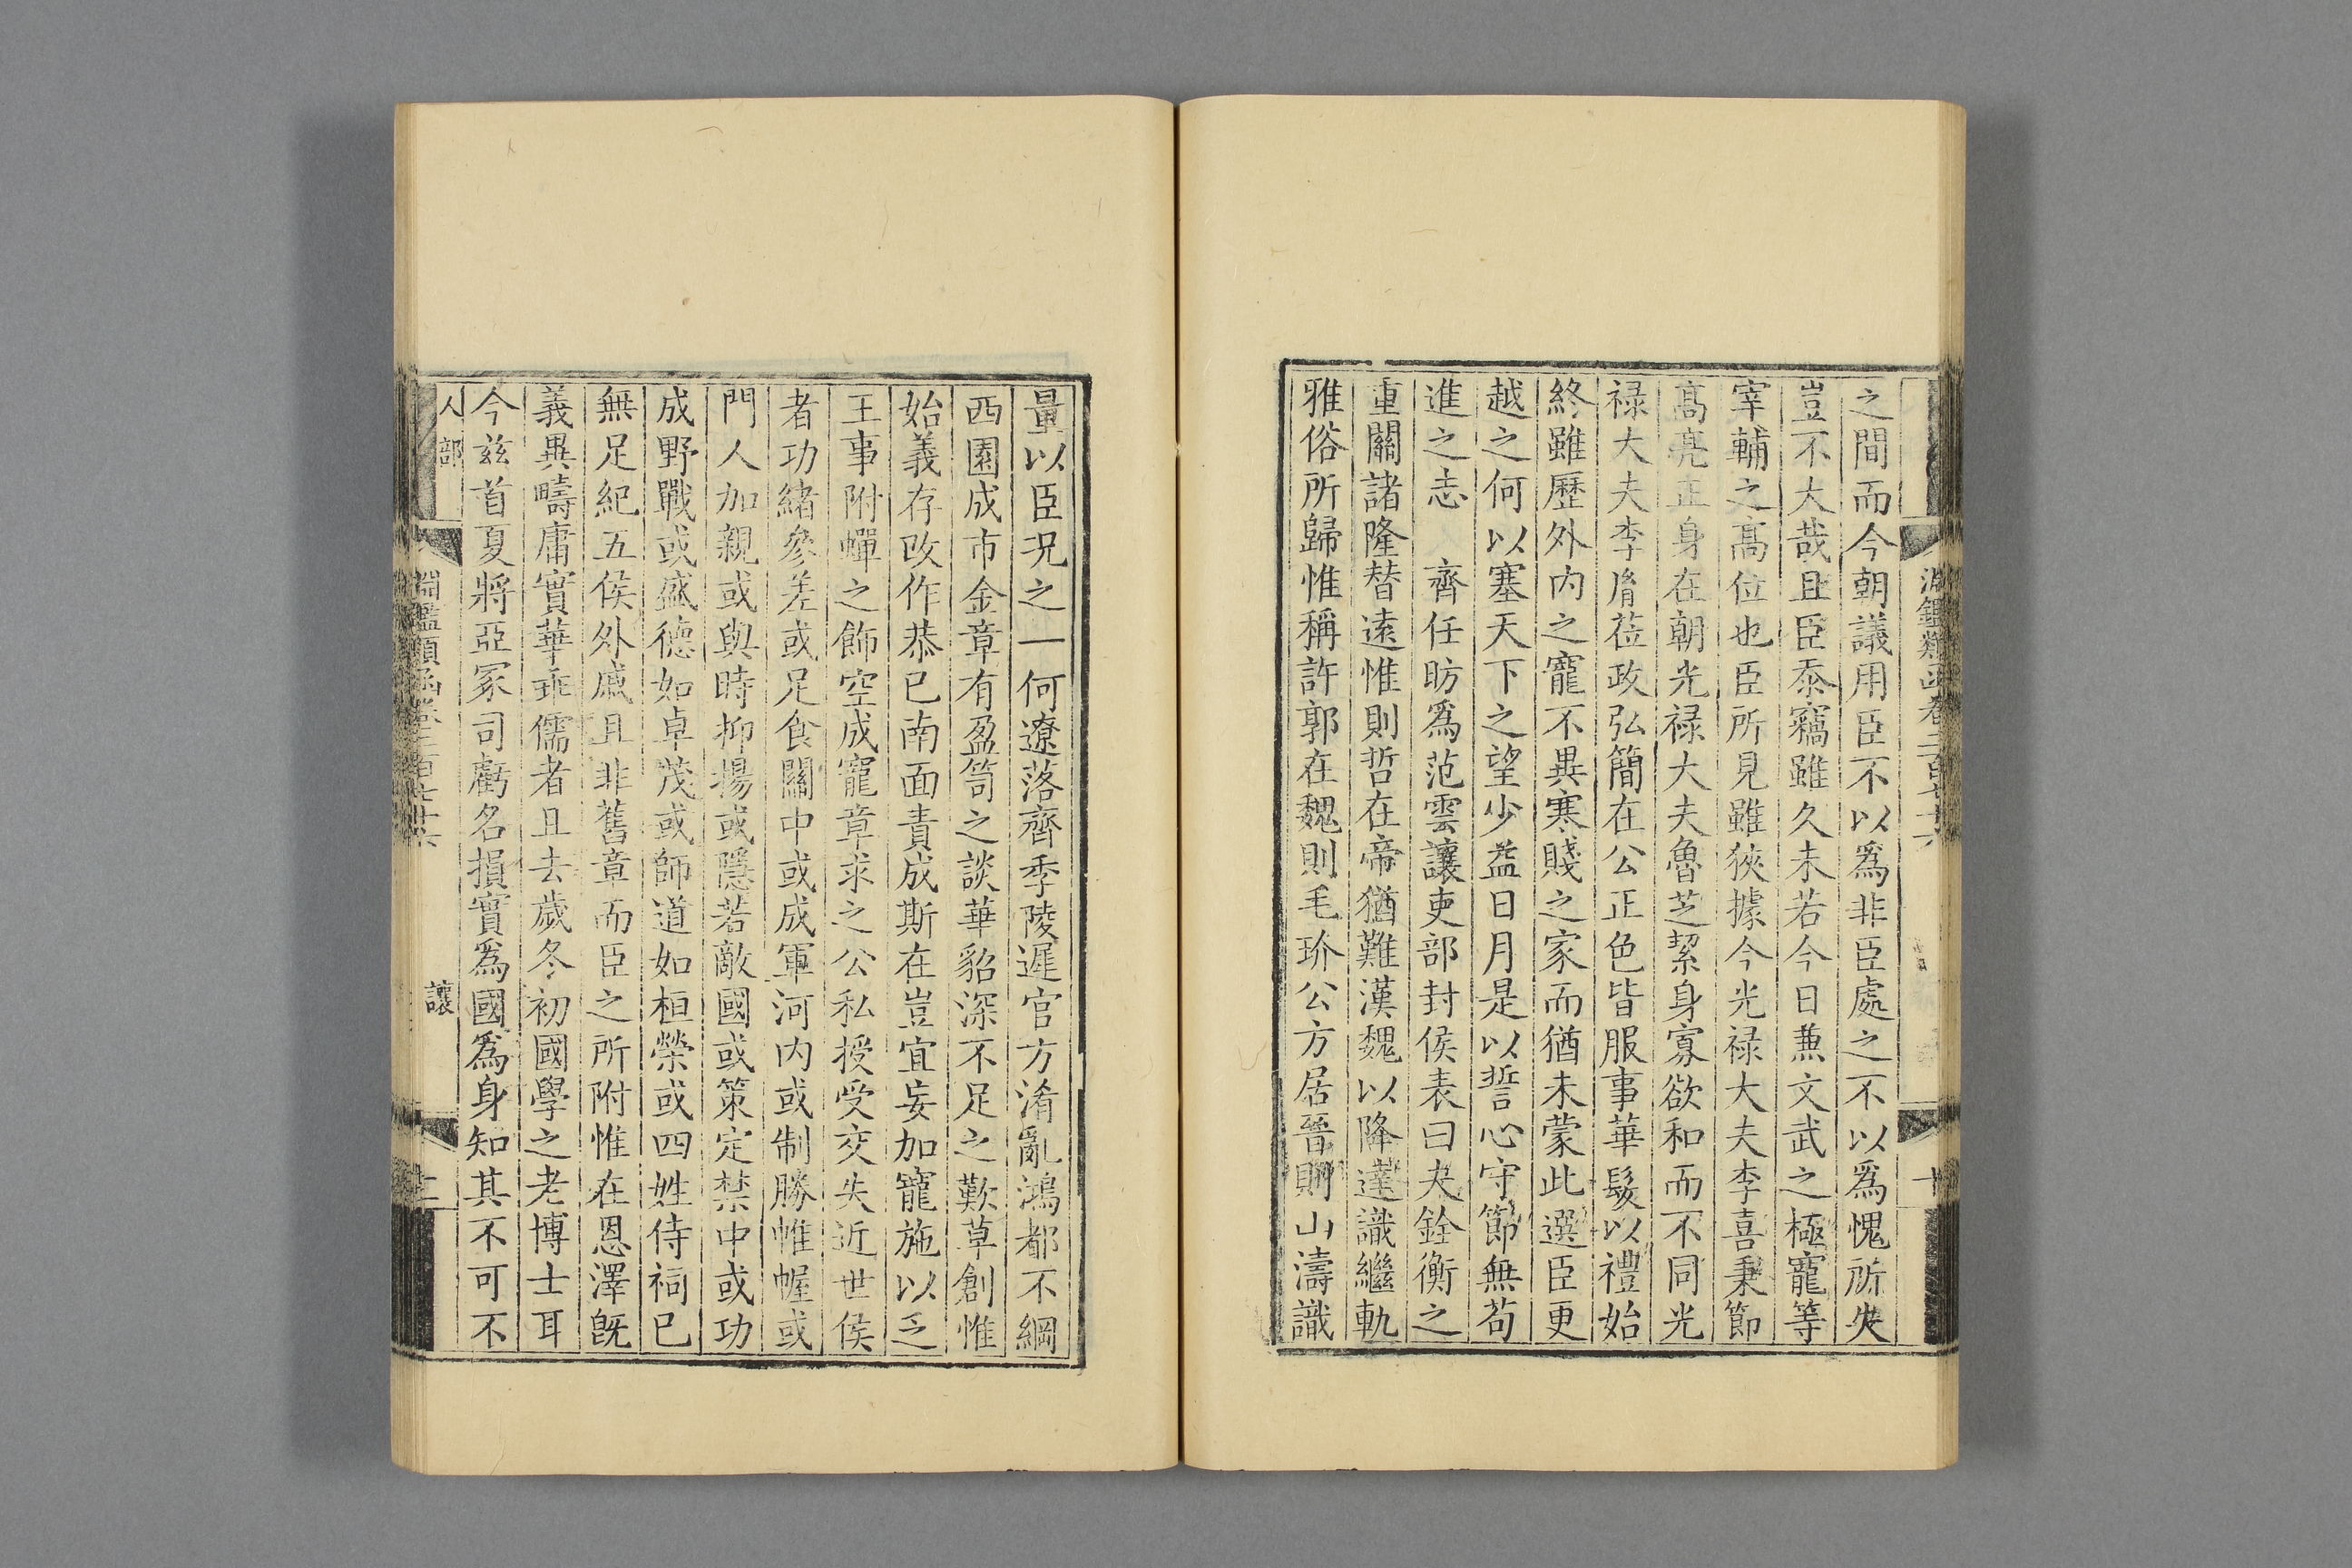 之間而今朝議用臣不以爲非臣處之不以爲愧所失
豈不大哉且臣忝竊雖久未若今日兼文武之極寵等
宰輔之髙位也臣所見雖狹據今光禄大夫李喜秉節
髙亮正身在朝光禄大夫魯芝絜身寡欲和而不同光
禄大夫李胤莅政弘簡在公正色皆服事華髮以禮始
終雖歷外内之寵不異寒賤之家而猶未蒙此選臣更
越之何以塞天下之望少益日月是以誓心守節無苟
進之志 齊任昉爲范雲讓吏部封侯表曰夫銓衡之
重關諸隆替逺惟則哲在帝猶難漢魏以降達識繼軌
雅俗所歸惟稱許郭在魏則毛玠公方居晉則山濤識
量以臣況之一何遼落齊季陵遲官方淆亂鴻都不綱
西園成市金章有盈笥之談華貂深不足之歎草創惟
始義存改作恭已南面責成斯在豈宜妄加寵施以乏
王事附蟬之飾空成寵章求之公私授受交失近世侯
者功緒參差或足食關中或成軍河内或制勝帷幄或
門人加親或與時抑揚或隱若敵國或策定禁中或功
成野戰或盛德如卓茂或師道如桓榮或四姓侍祠已
無足紀五侯外戚且非舊章而臣之所附惟在恩澤旣
義異疇庸實華乖儒者且去歲冬初國學之老博士耳
今兹首夏將亞冢司虧名損實爲國爲身知其不可不
人部
淵鑑類函卷二百七十六
讓